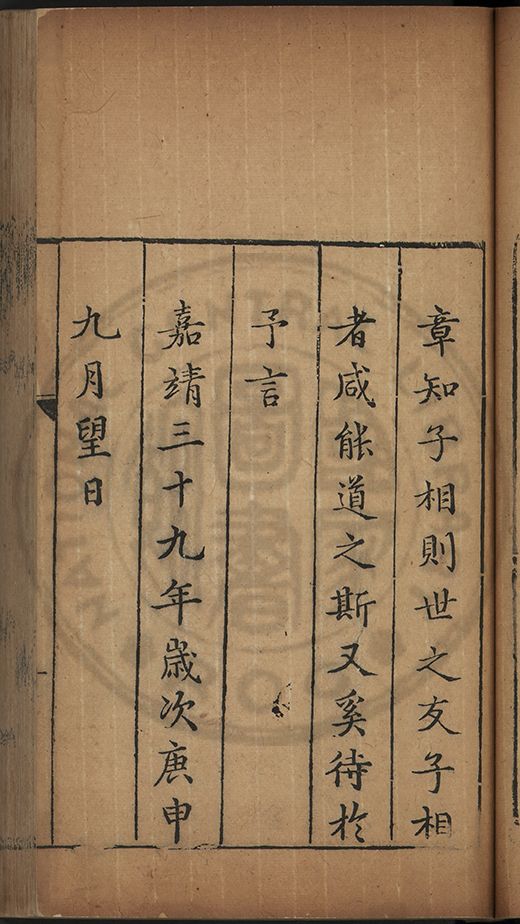 章知子相則世之友子相
者咸能道之斯又奚待於
予言
嘉靖三十九年歲次庚申
九月望日